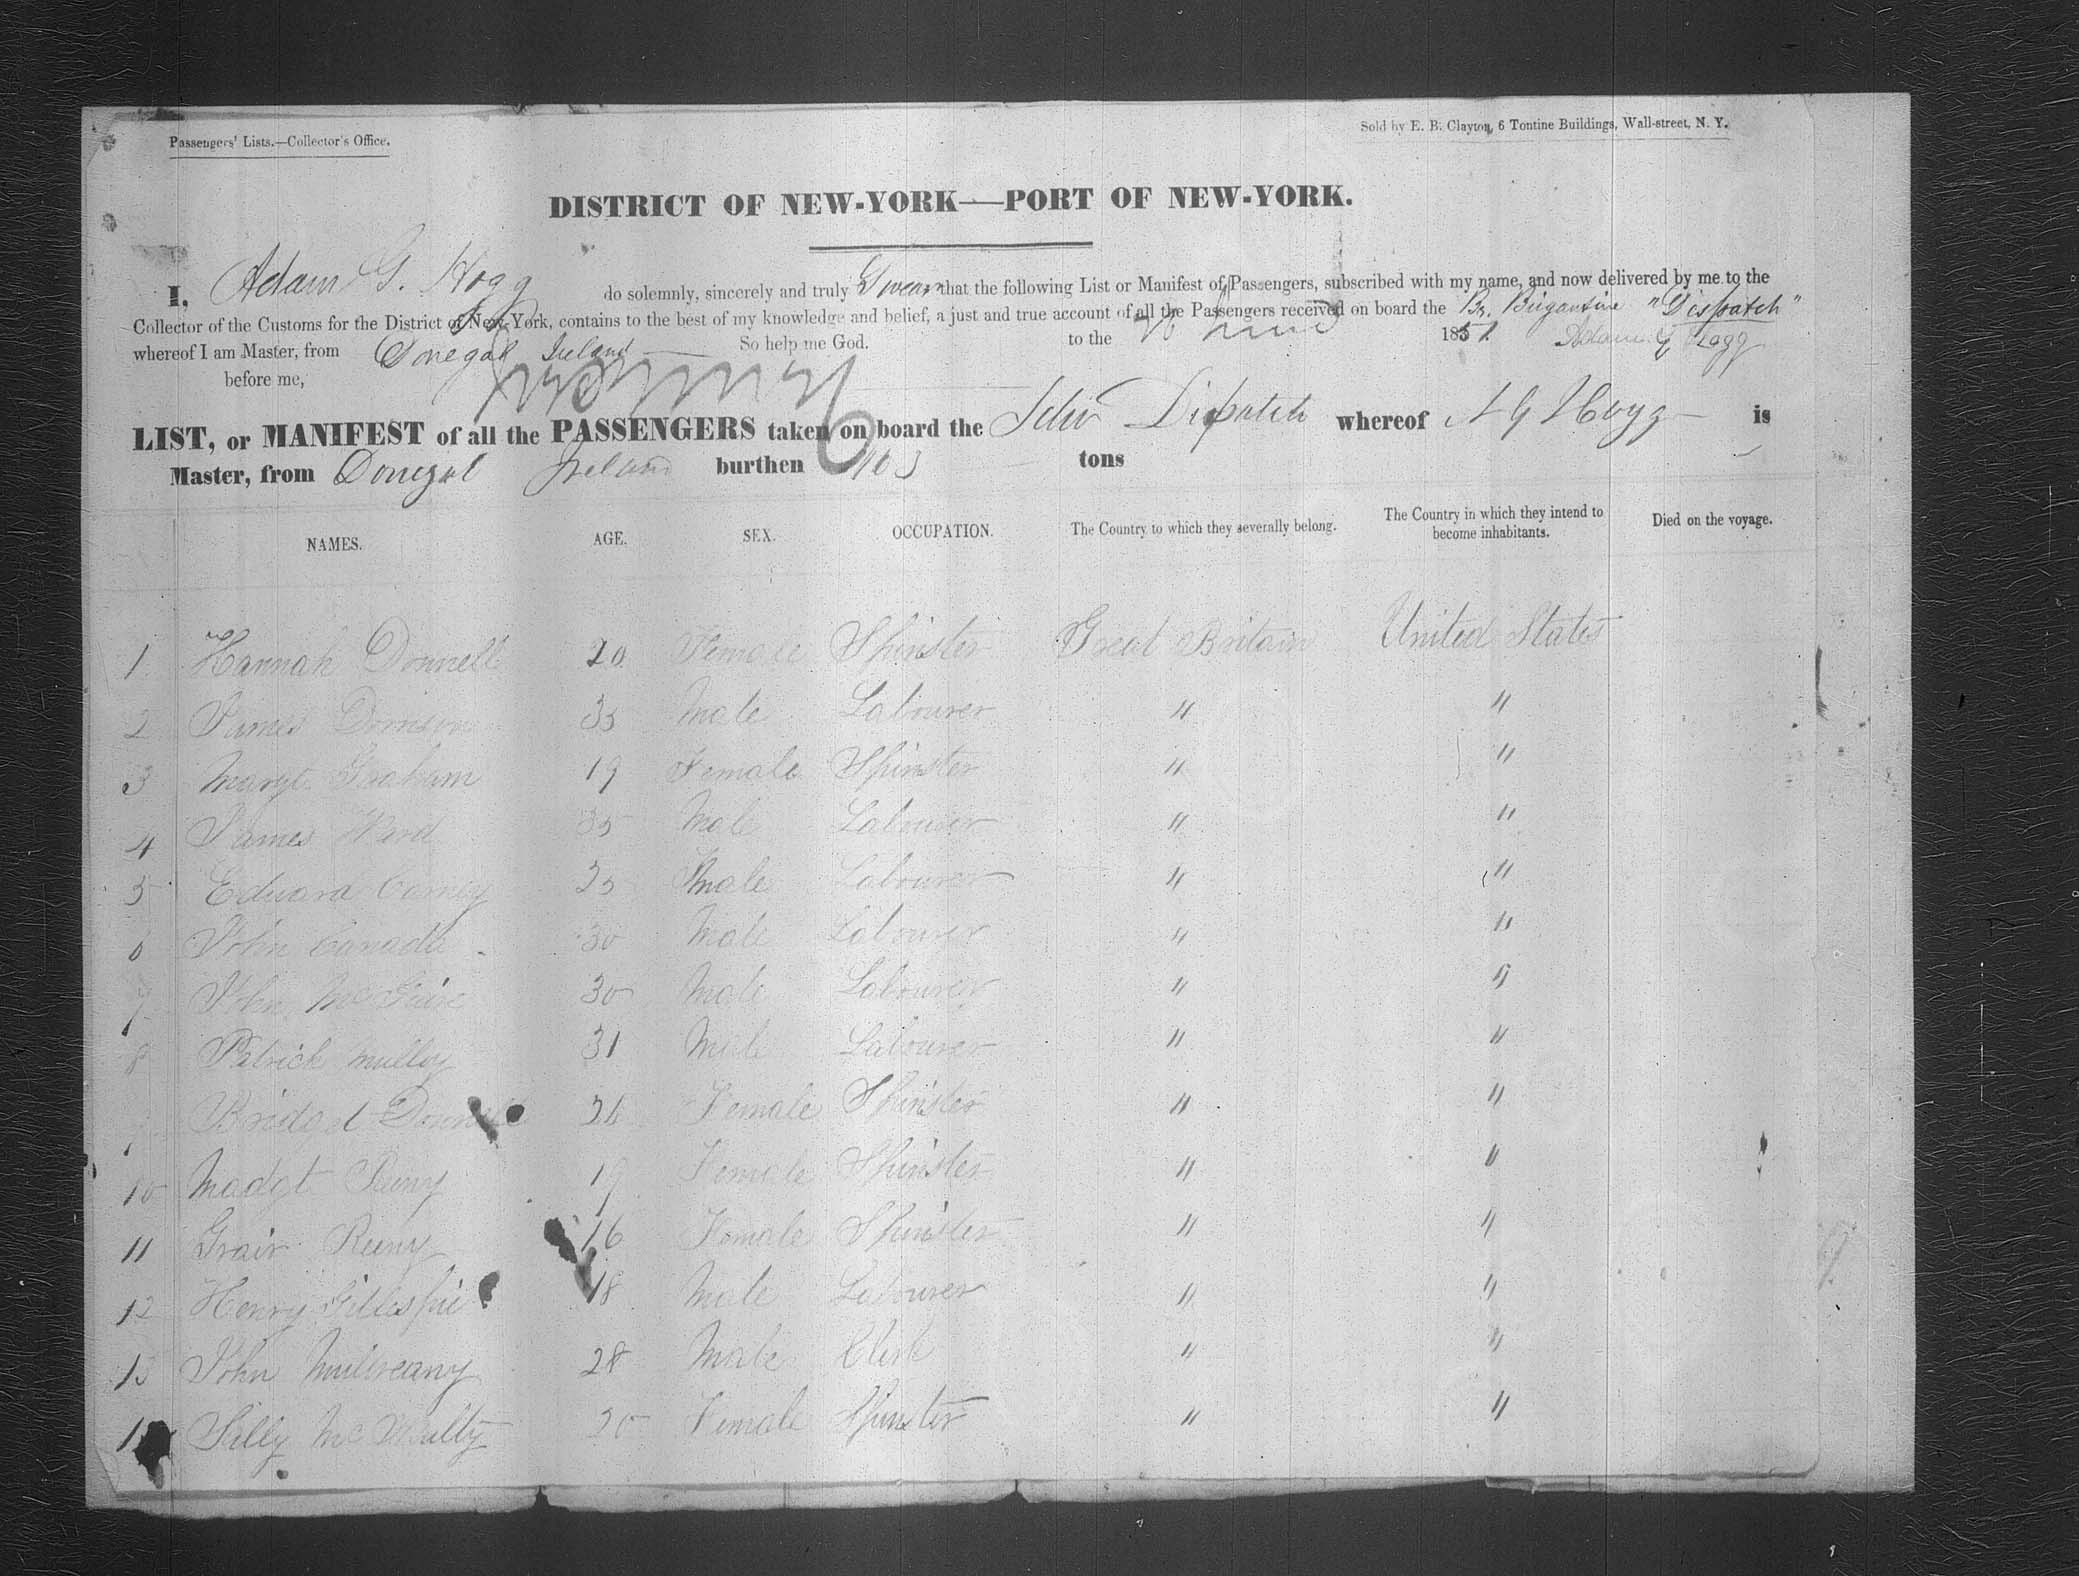 Passengers' Lists.—Collector's Office.
Sold by E. B. Clayton, 6 Tontine Buildings, Wall-street, N. Y.
DISTRICT OF NEW-YORK—PORT OF NEW-YORK.
I, Adam G. Hogg do solemnly, sincerely and truly Swear that the following List or Manifest of Passengers, subscribed with my name, and now delivered by me to the
Collector of the Customs for the District of New-York, contains to the best of my knowledge and belief, a just and true account of all the Passengers received on board the Br. Brigantine "Dispatch"
whereof I am Master, from Donegal Ireland So help me God. to the 1851 Adam G Hogg
before me,
LIST, or MANIFEST of all the PASSENGERS taken on board the Schr Dispatch whereof A G Hogg is
Master, from Donegal Ireland burthen 103 tons
NAMES. AGE. SEX. OCCUPATION. The Country to which they severally belong. The Country in which they intend to become inhabitants. Died on the voyage.
1 Hannah Donnell 20 Female Spinster Great Britain United States
2 James 35 Male Labourer " "
3 Margt Graham 19 Female Spinster " "
4 James Ward 35 Male Labourer " "
5 Edward Carney 25 Male Labourer " "
6 John Canade 30 Male Labourer " "
7 John McGuire 30 Male Labourer " "
8 Patrick Mulloy 31 Male Labourer " "
9 Bridget Donnell 24 Female Spinster " "
10 Madgt Reeny 19 Female Spinster " "
11 Reeny 16 Female Spinster " "
12 Henry Gillespie 18 Male Labourer " "
13 John Mulreany 28 Male Clerk " "
14 Sally McNulty 20 Female Spinster " "